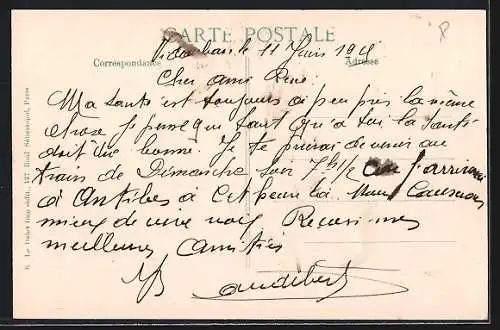 CARTE POSTALE
le 11 Juin 191
Correspondance
Adresse
Cher ami René.
Ma santé est toujours à peu près la même
chose je pense que quant à toi la santé
doit être bonne. Je te prierai de venir au
train de Dimanche soir 7h1/2 car j'arriverai
à Antibes à cette heure là. Nous causerons
mieux de vive voix Reçois mes
meilleures Amitiés
Audibert
6. Le Deley imp.-édit., 127 Boul. Sébastopol, Paris